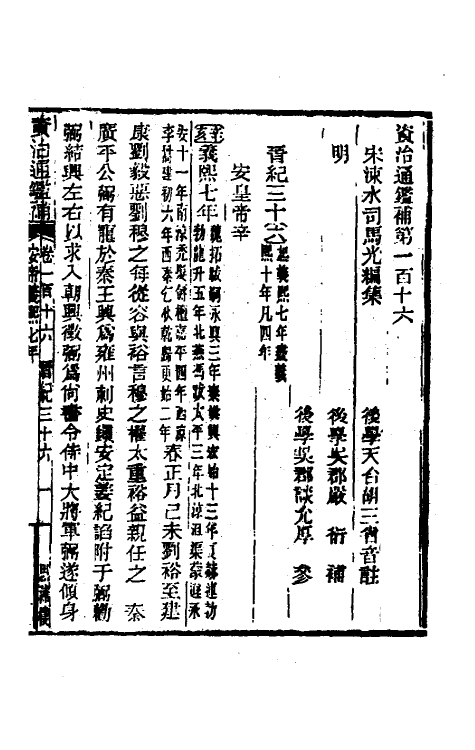 資治通鑑補第一百十六
宋涑水司馬光編集
後學天台胡三省音註
明
後學吳郡嚴衍補
後學吳郡談允厚參
晉紀三十六起義熙七年盡義
熙十年凡四年
安皇帝辛
辛亥義熙七年魏拓跋嗣永興三年秦姚興弘始十三年夏赫連勃
勃龍升五年北燕馮跋太平三年北涼沮渠蒙遜永
安十一年南涼禿髮傉檀嘉平四年西涼
李暠建初六年西秦乞伏乾歸更始三年春正月己未劉裕至建
康劉毅惡劉穆之每從容與裕言穆之權太重裕益親任之 秦
廣平公弼有寵於秦王興爲雍州刺史鎭安定姜紀諂附于弼勸
弼結興左右以求入朝興徵弼爲尚書令侍中大將軍弼遂傾身
資治通鑑補 卷一百十六 晉紀三十六 一
安帝義熙七年